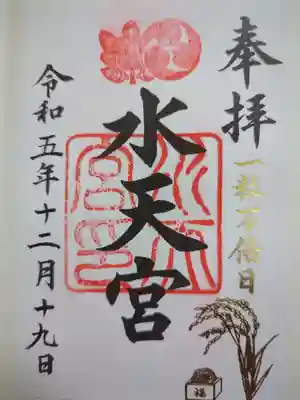 奉拝
一粒万倍日
水天宮
水天宮印
令和五年十二月十九日
福